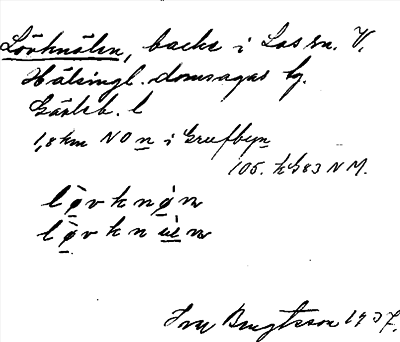 Lövknölen, backe i Los sn. V.
Hälsingl. domsagas tg.
Gävleb. l
1,8 km NO n i Grufbyn
105. h G 83 N M.
l ö v k n ø n
l ö v k n ù n
Ivar Bengtsson 1937.